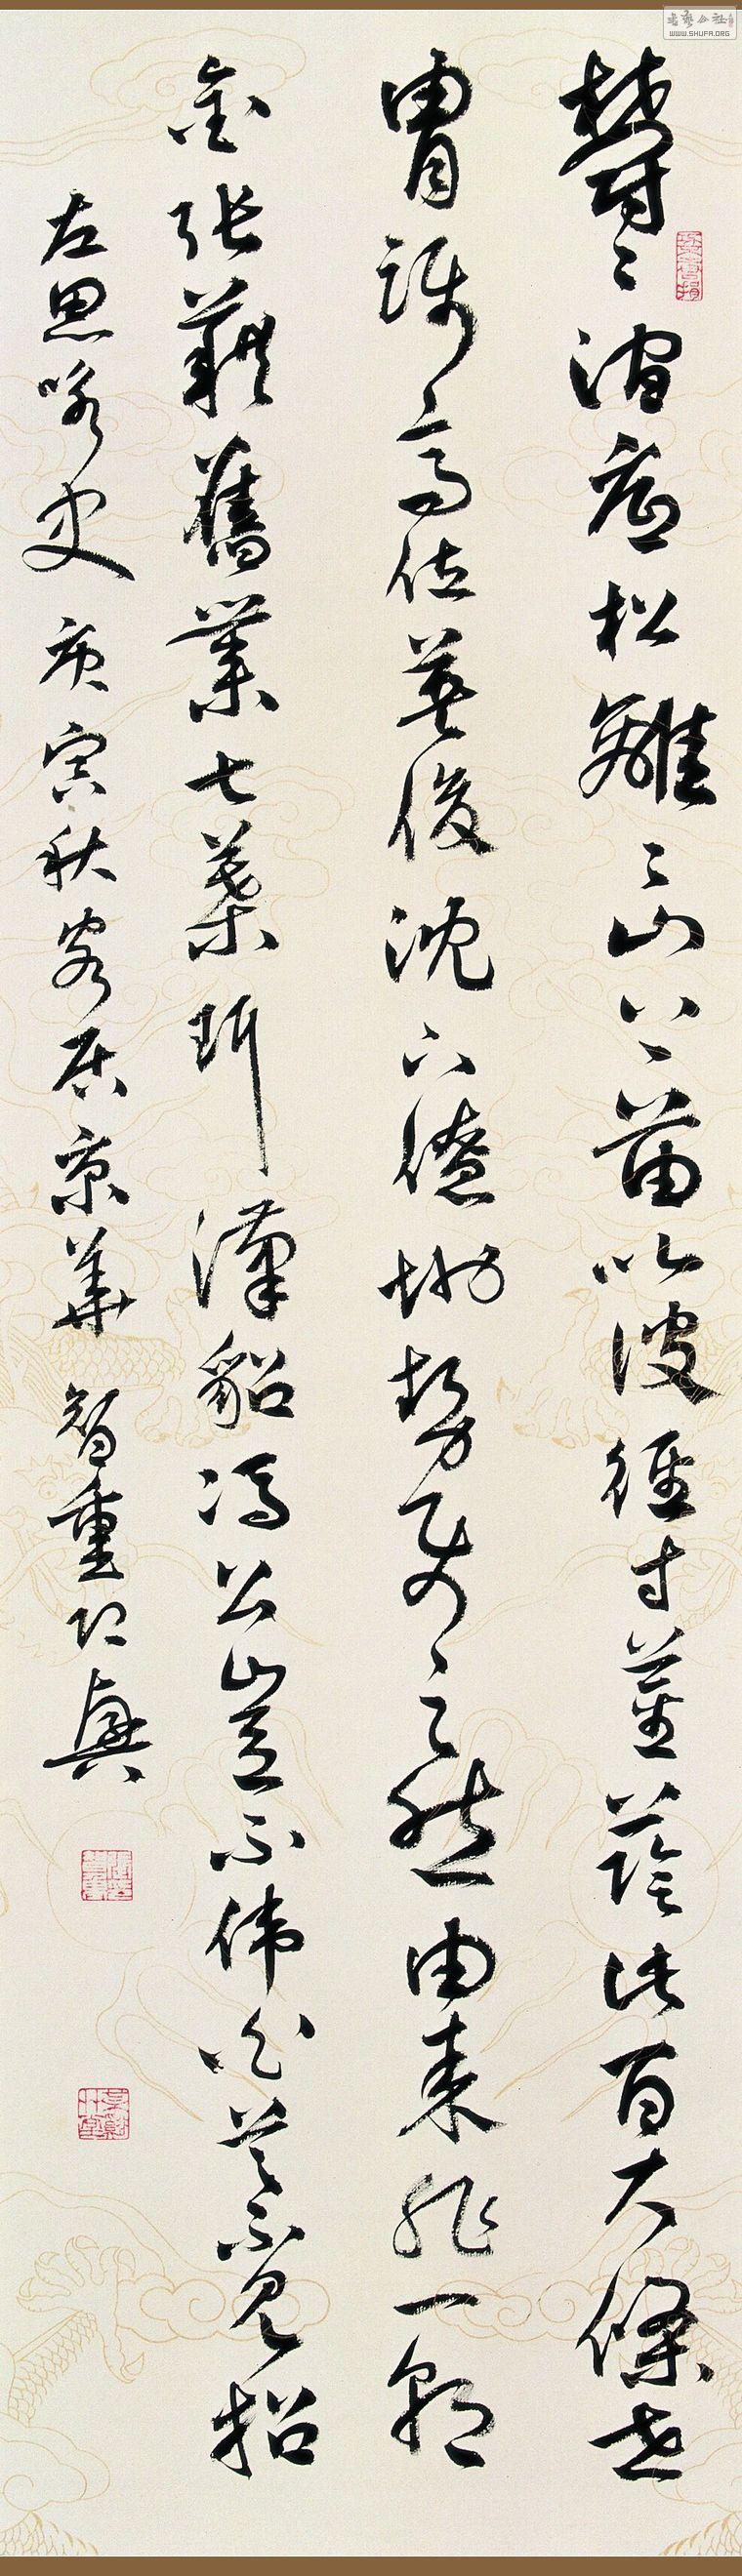 鬱〻澗底松離〻山上苗以彼徑寸莖蔭此百尺條世
胄躡高位英俊沈下僚地勢使之然由來非一朝
金張藉舊業七葉珥漢貂馮公豈不偉白首不見招
左思咏史 庚寅秋客居京華 智重
WWW.SHUFA.ORG